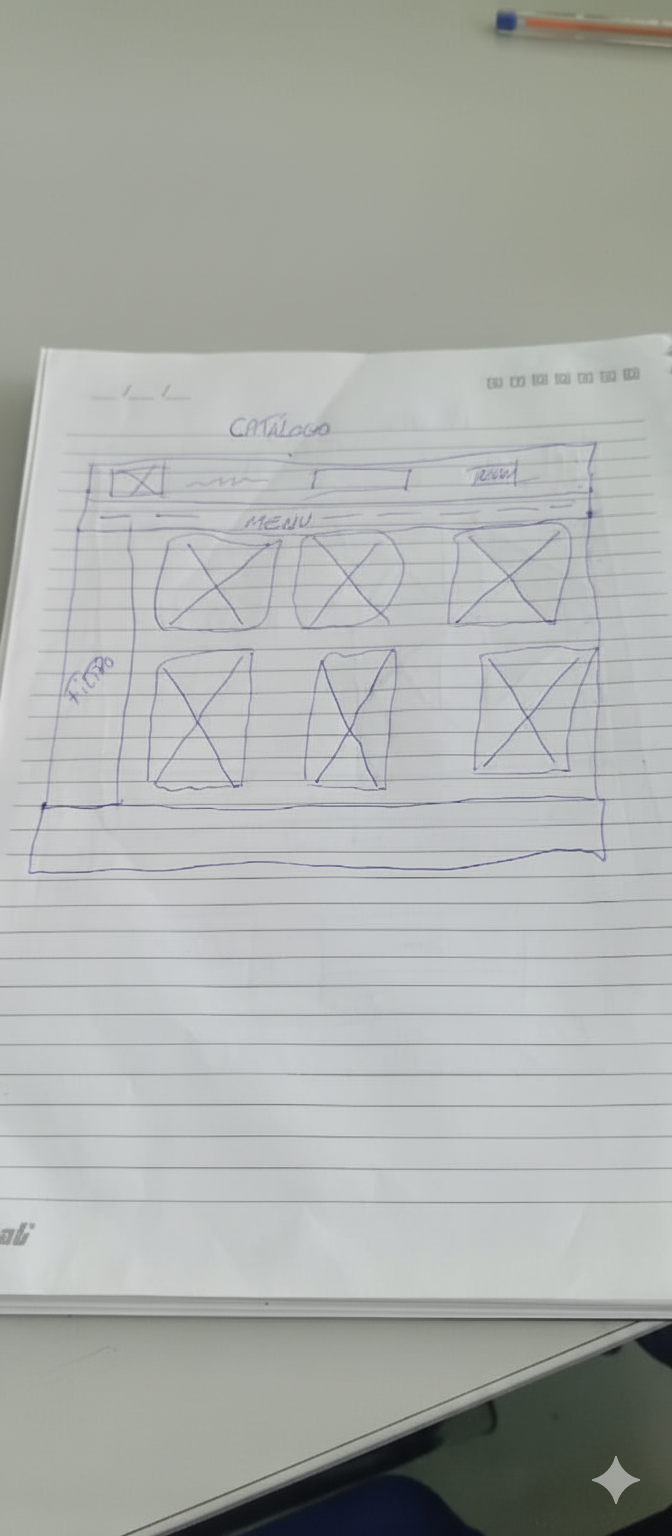 CATÁLOGO
MENU
FILTRO